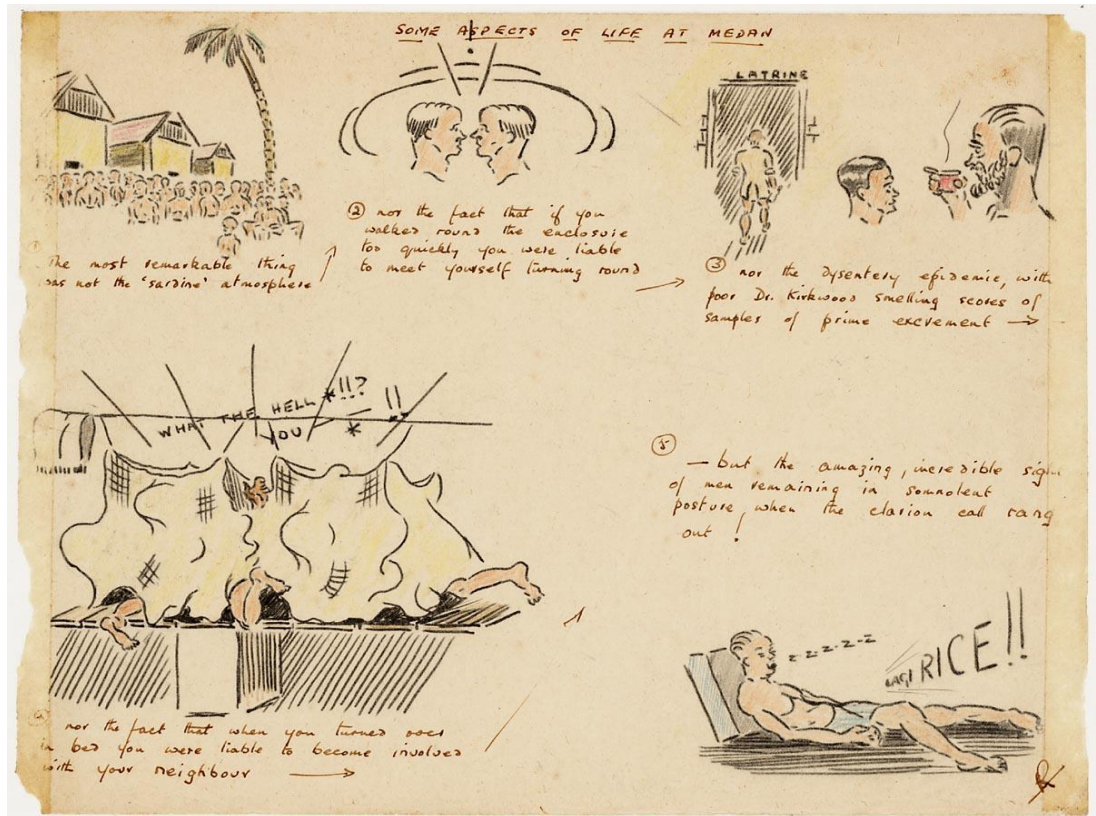 SOME ASPECTS OF LIFE AT MEDAN
The most remarkable thing
was not the 'sardine' atmosphere
② nor the fact that if you
walked round the enclosure
too quickly you were liable
to meet yourself turning round
LATRINE
③ nor the dysentery epidemic, with
poor Dr. Kirkwood smelling scores of
samples of prime excrement
WHAT THE HELL *!!?
YOU — * !!
nor the fact that when you turned over
in bed you were liable to become involved
with your neighbour
⑤
— but the amazing, incredible sight
of men remaining in somnolent
posture, when the clarion call rang
out !
z-z-z-z-z
LAGI RICE!!